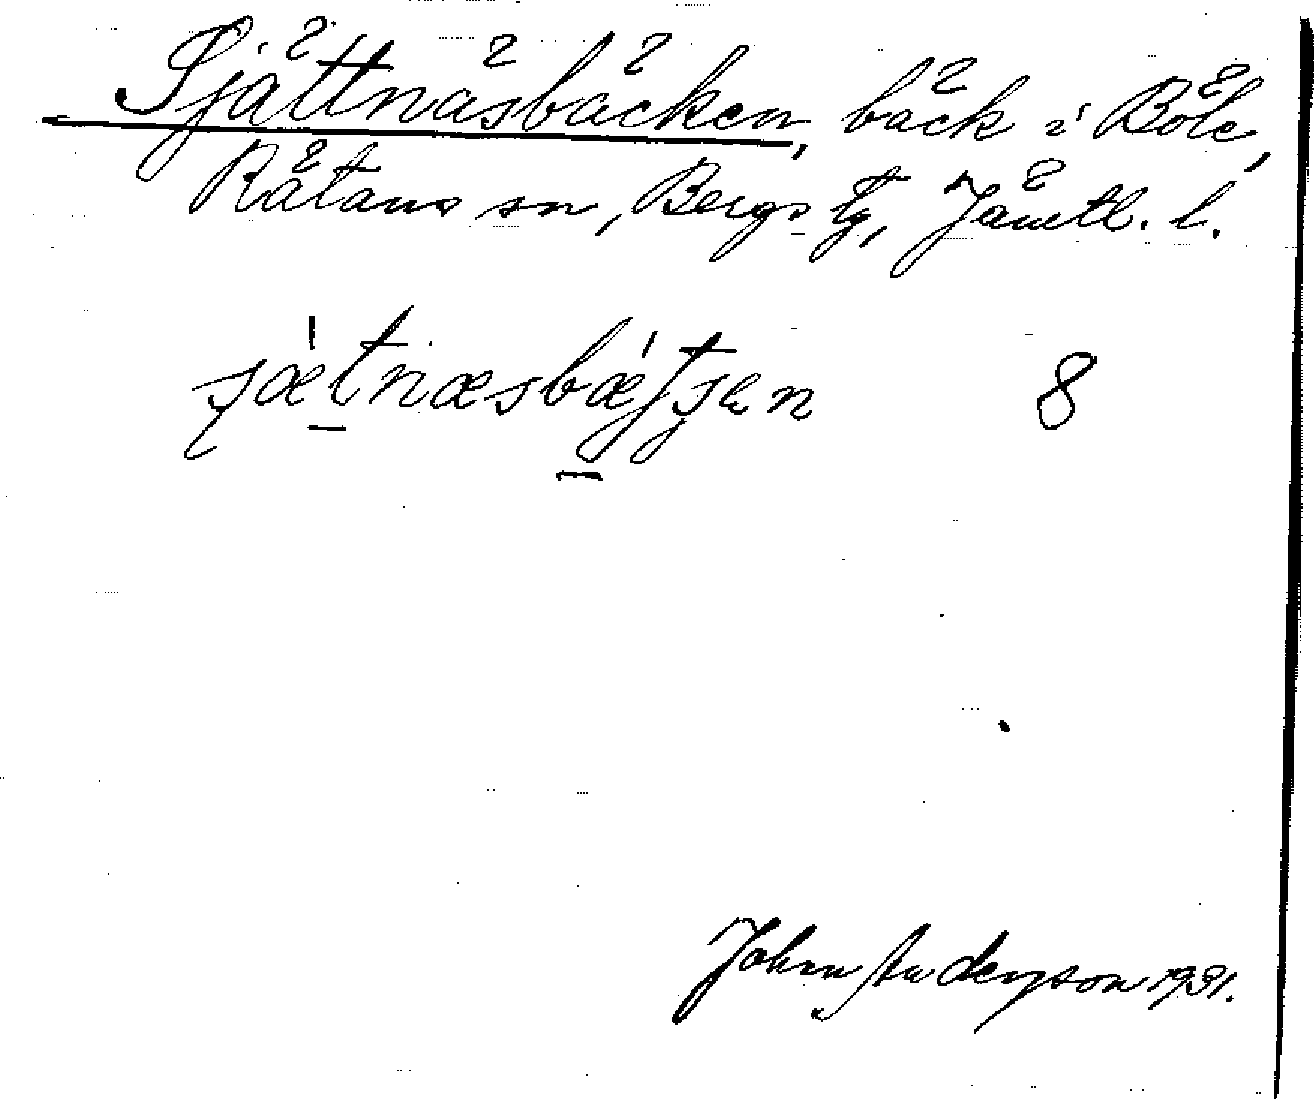 Sjättnäsbäcken, bäck i Böle,
Rätans sn, Bergs tg, Jämtl. l.
sjætnæsbæjtjen 8
John Anderson 1931.